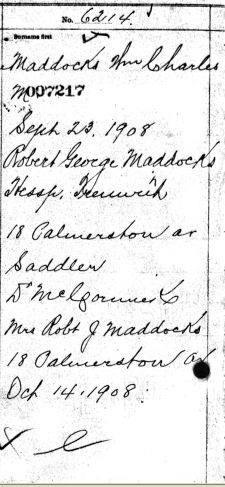 No. 6214.
Surname first
Maddocks Wm Charles
M 097217
Sept 23, 1908
Robert George Maddocks
18 Palmerston av
Saddler
Mrs Robt G Maddocks
18 Palmerston av
Oct 14, 1908.